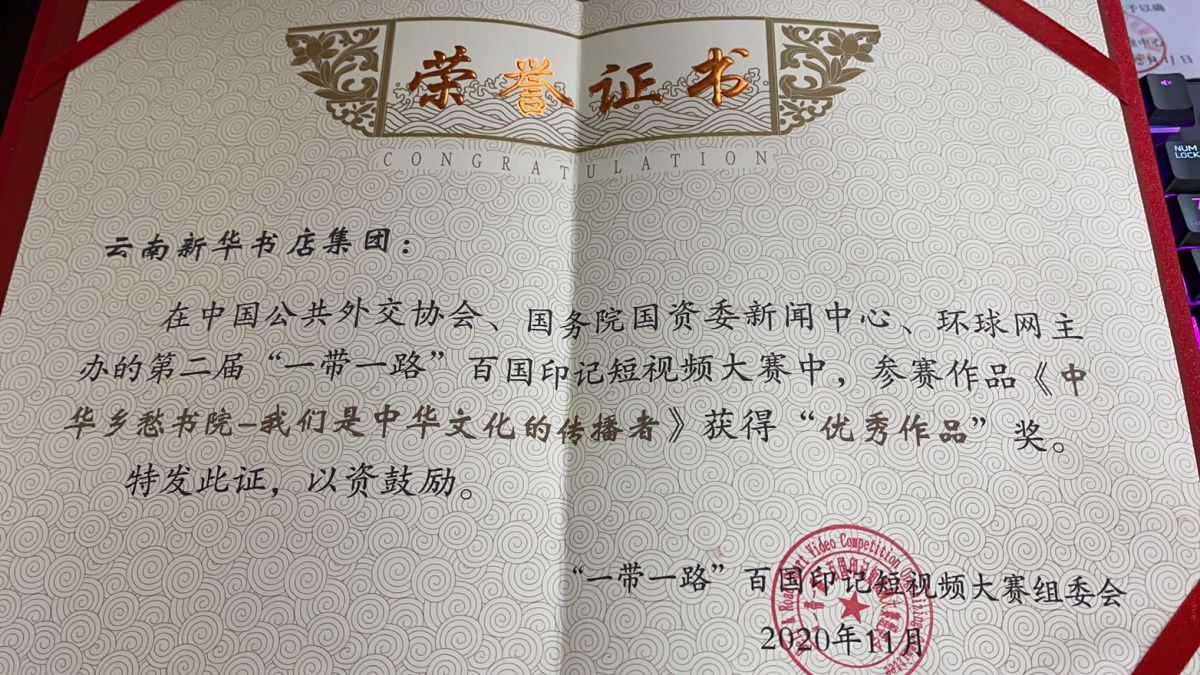 予以确
中心
11日
荣誉证书
CONGRATULATION
NUM LOCK
7
云南新华书店集团：
在中国公共外交协会、国务院国资委新闻中心、环球网主
办的第二届“一带一路”百国印记短视频大赛中，参赛作品《中
华乡愁书院-我们是中华文化的传播者》获得“优秀作品”奖。
特发此证，以资鼓励。
Video Competition
“一带一路”百国印记短视频大赛组委会
2020年11月